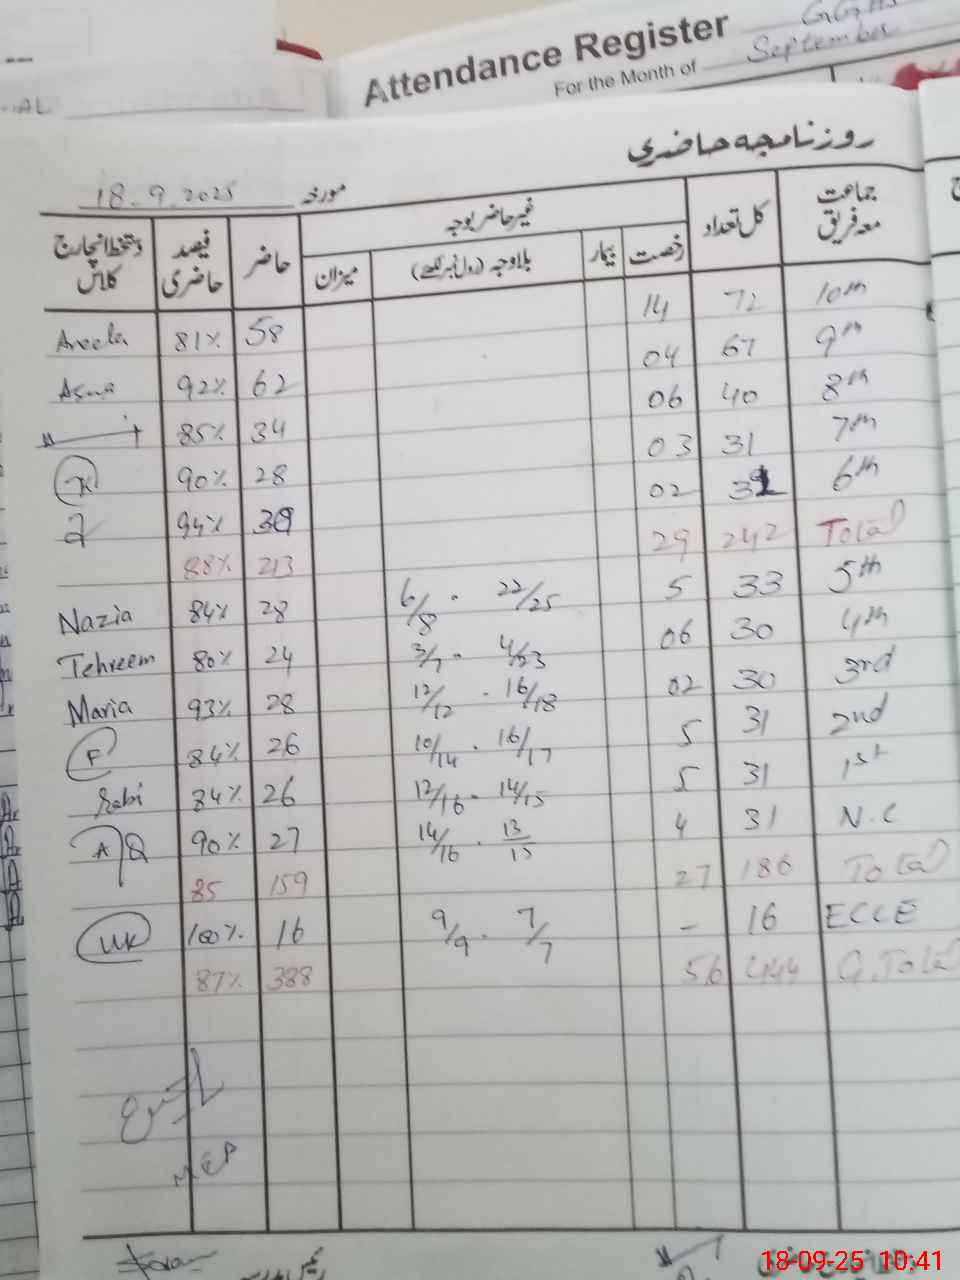 Attendance Register
For the Month of September
روزنامچہ حاضری
مورخہ 18.9.2025
جماعت معہ فریق کل تعداد غیر حاضر بوجہ حاضر فیصد حاضری دستخط انچارج کلاس
رخصت بیمار بلاوجہ (رول نمبر لکھیے) میزان
10th 72 14 58 81% Aneela
9th 67 04 62 92% Asma
8th 40 06 34 85%
7th 31 03 28 90%
6th 02 30 94%
Total 242 29 213 88%
5th 33 5 6/8 . 22/25 28 84% Nazia
4th 30 06 3/7 . 4/23 24 80% Tehreem
3rd 30 02 12/12 . 16/18 28 93% Maria
2nd 31 5 10/14 . 16/17 26 84% F
1st 31 5 12/16 . 14/15 26 84% Rabi
N.C 31 4 14/16 . 13/15 27 90%
Total 186 27 159 85
ECCE 16 – 9/9 . 7/7 16 100% UK
G.Total 444 56 388 87%
18-09-25 10:41